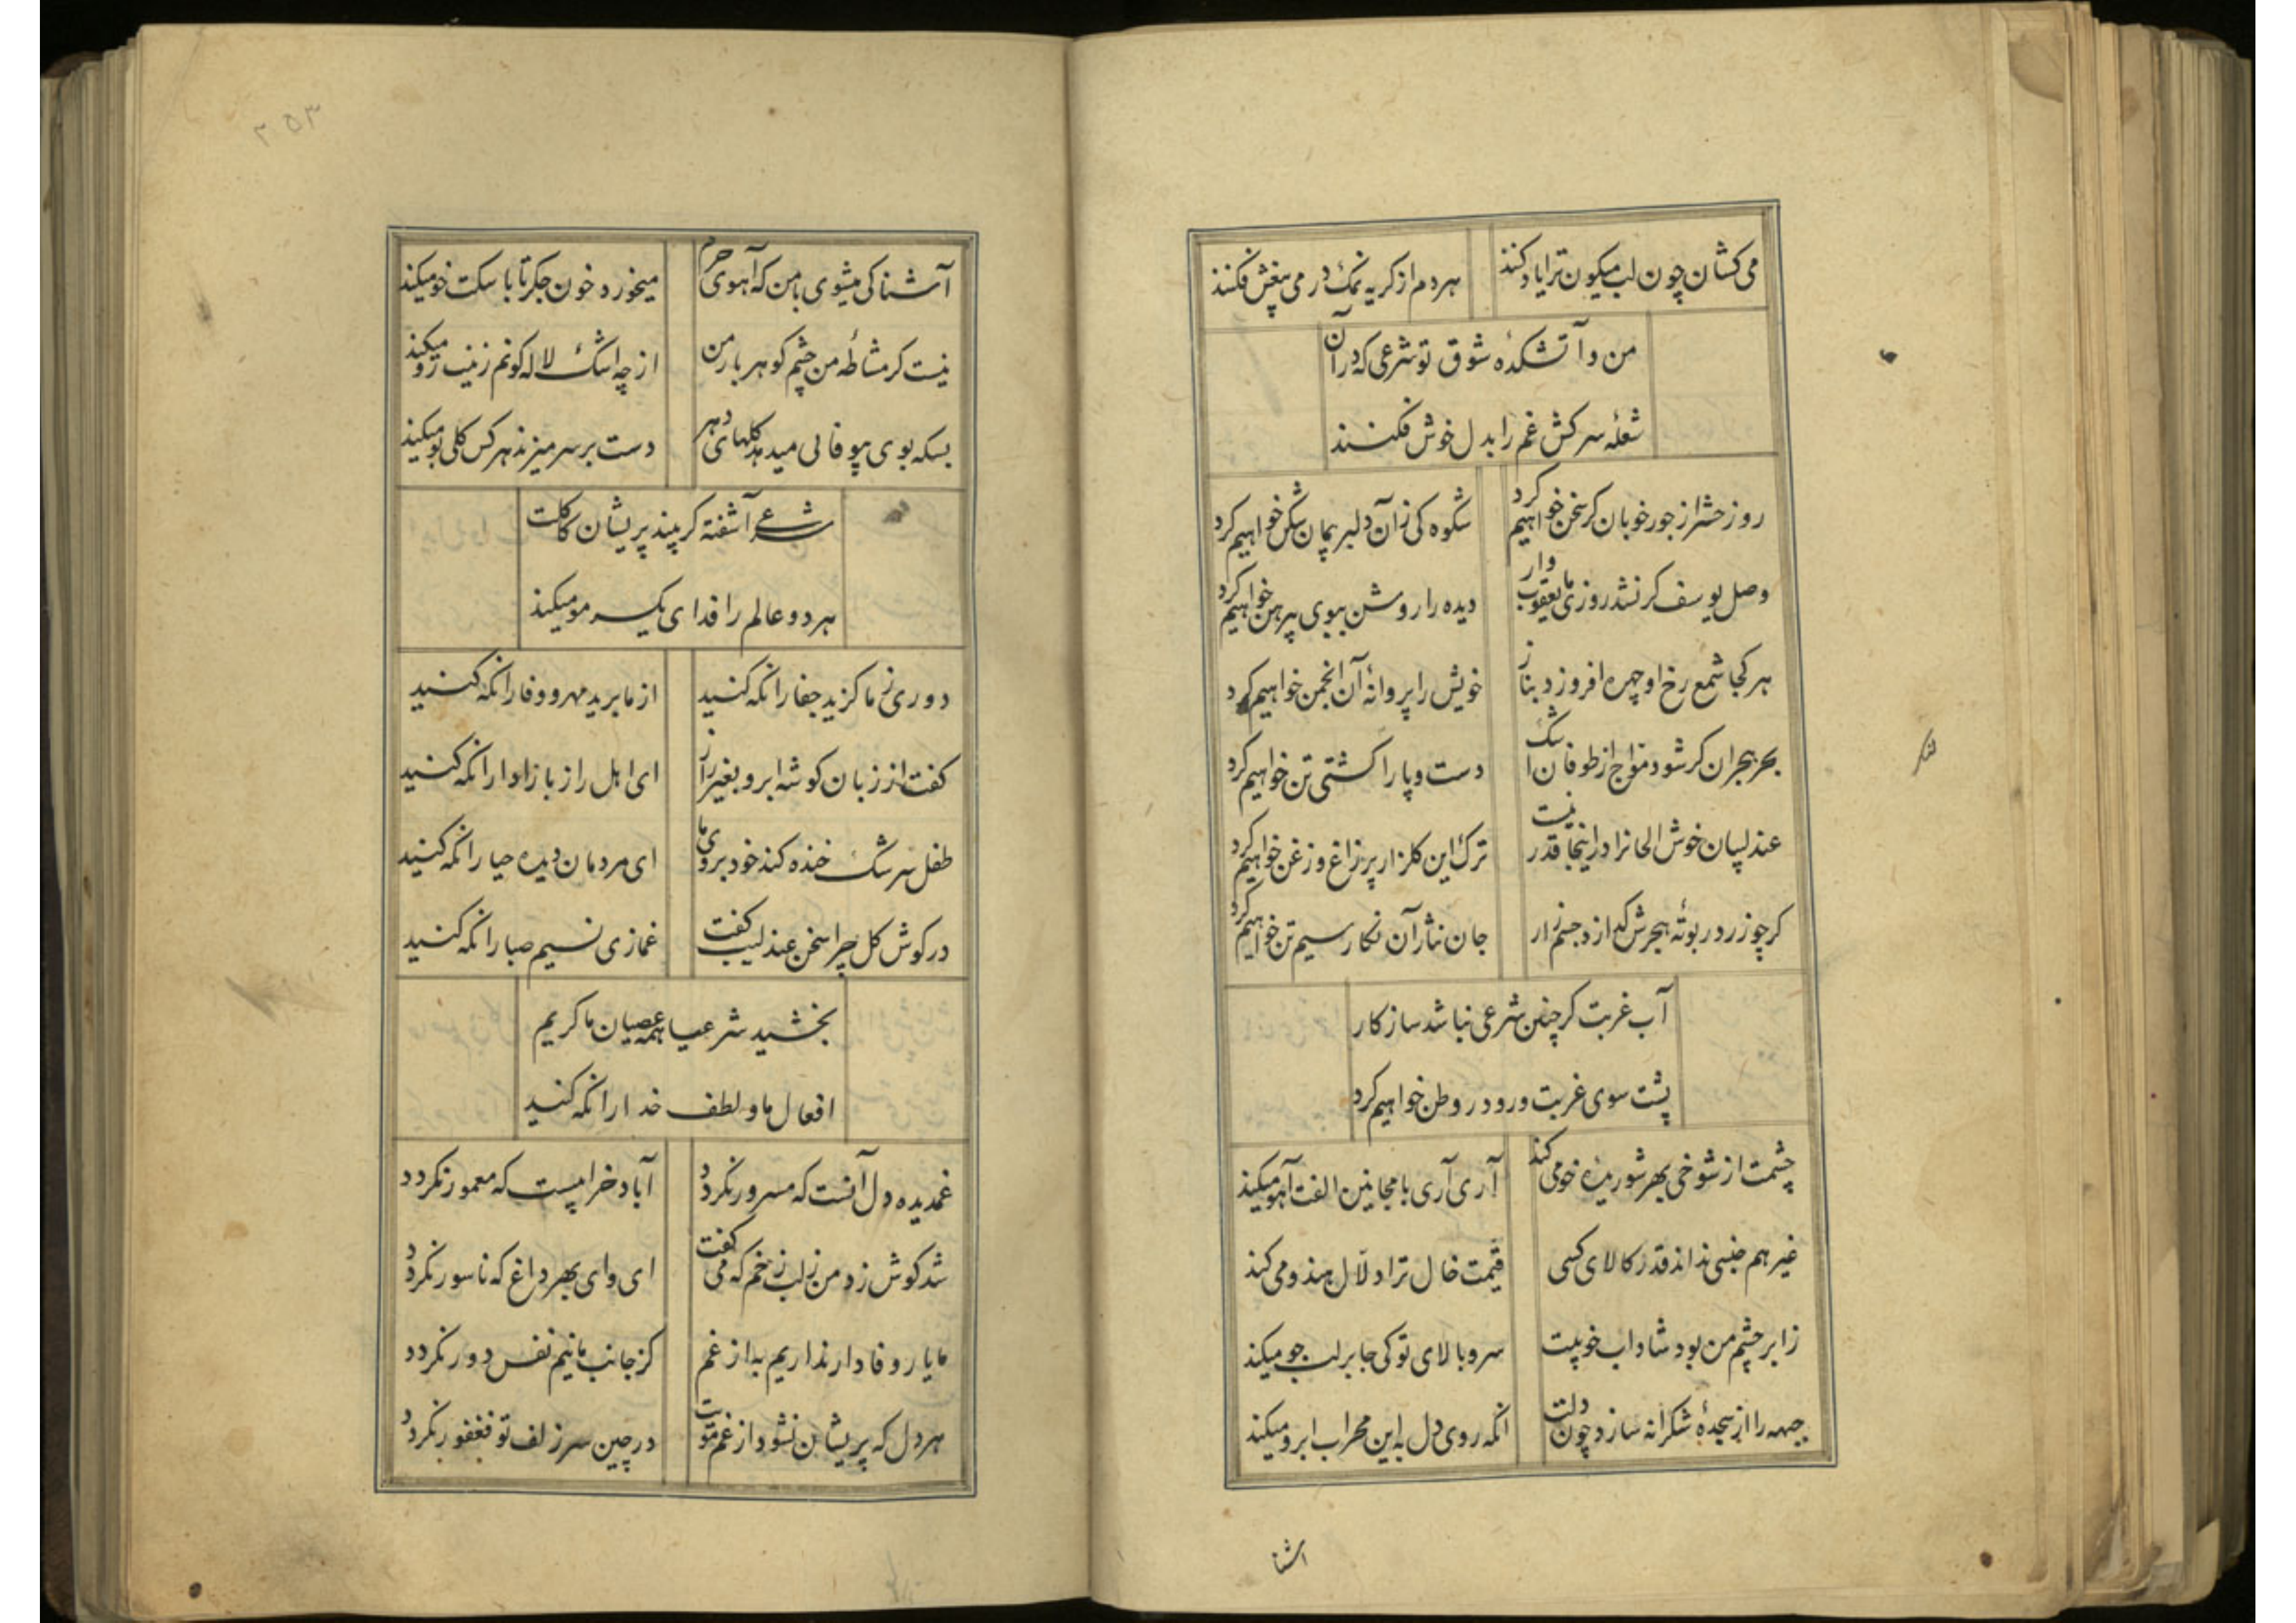 می کشان چون لب میکون ترا یاد کنند
هر دم از کریه نمک در می بیغش فکنند
من و آتشکدهٔ شوق تو شرعی که در آن
شعلهٔ سرکش غم را بدل خوش فکنند
روز حشر از جور خوبان کر سخن خواهیم کرد
شکوه کی زان دلبر پیمان شکن خواهیم کرد
وصل یوسف کر نشد روزی ما یعقوب وار
دیده را روشن ببوی پیرهن خواهیم کرد
هر کجا شمع رخ او چهره افروزد بناز
خویش را پروانهٔ آن انجمن خواهیم کرد
بحر هجران کر شود مواج از طوفان اشک
دست و پا را کشتی تن خواهیم کرد
عندلیبان خوش الحانرا در اینجا قدر نیست
ترک این کلزار پر زاغ و زغن خواهیم کرد
کر چو زر در بوتهٔ هجرش کدازد جسم زار
جان نثار آن نکار سیم تن خواهیم کرد
آب غربت کر چنین شرعی نباشد سازکار
پشت سوی غربت و رو در وطن خواهیم کرد
چشمت از شوخی بهر شوریده خو می کند
آری آری با مجانین الفت آهو میکند
غیر هم جنسی نداند قدر کالای کسی
قیمت خال ترا دلّال هندو می کند
ز ابر چشم من بود شاداب خوبیت
سرو بالای تو کی جا بر لب جو میکند
جبهه را از سجدهٔ شکرانه سازد چون دلت
انکه روی دل باین محراب ابرو میکند
اشنا
۲۵۳
آشنا کی میشوی با من که آهوی حرم
میخورد خون جکر تا با سکت خو میکند
نیست کر مشاطهٔ من چشم کوهر بار من
از چه اشک لاله کونم زینت رو میکند
بسکه بوی بیوفائی میدهد کلهای دهر
دست بر سر میزند هر کس کلی بو میکند
شرعی آشفته کر بیند پریشان کاکلت
هر دو عالم را فدای یک سر مو میکند
دوری ز ما کزید جفا را نکه کنید
از ما برید مهر و وفا را نکه کنید
کفت از زبان کوشه ابرو بغیر راز
ای اهل راز باز ادا را نکه کنید
طفل سرشک خنده کند خود بروی ما
ای مردمان دیده حیا را نکه کنید
در کوش کل چرا سخن عندلیب کفت
غمازی نسیم صبا را نکه کنید
بخشید شرعیا همه عصیان ما کریم
افعال ما و لطف خدا را نکه کنید
غمدیده دل آنست که مسرور نکردد
آباد خرابیست که معمور نکردد
شد کوش زد من ز لب زخم که می کفت
ای وای بهر داغ که ناسور نکردد
ما یار وفادار نداریم به از غم
کز جانب ما نیم نفس دور نکردد
هر دل که پریشان نشود از غم مویت
در چین سر زلف تو فغفور نکردد